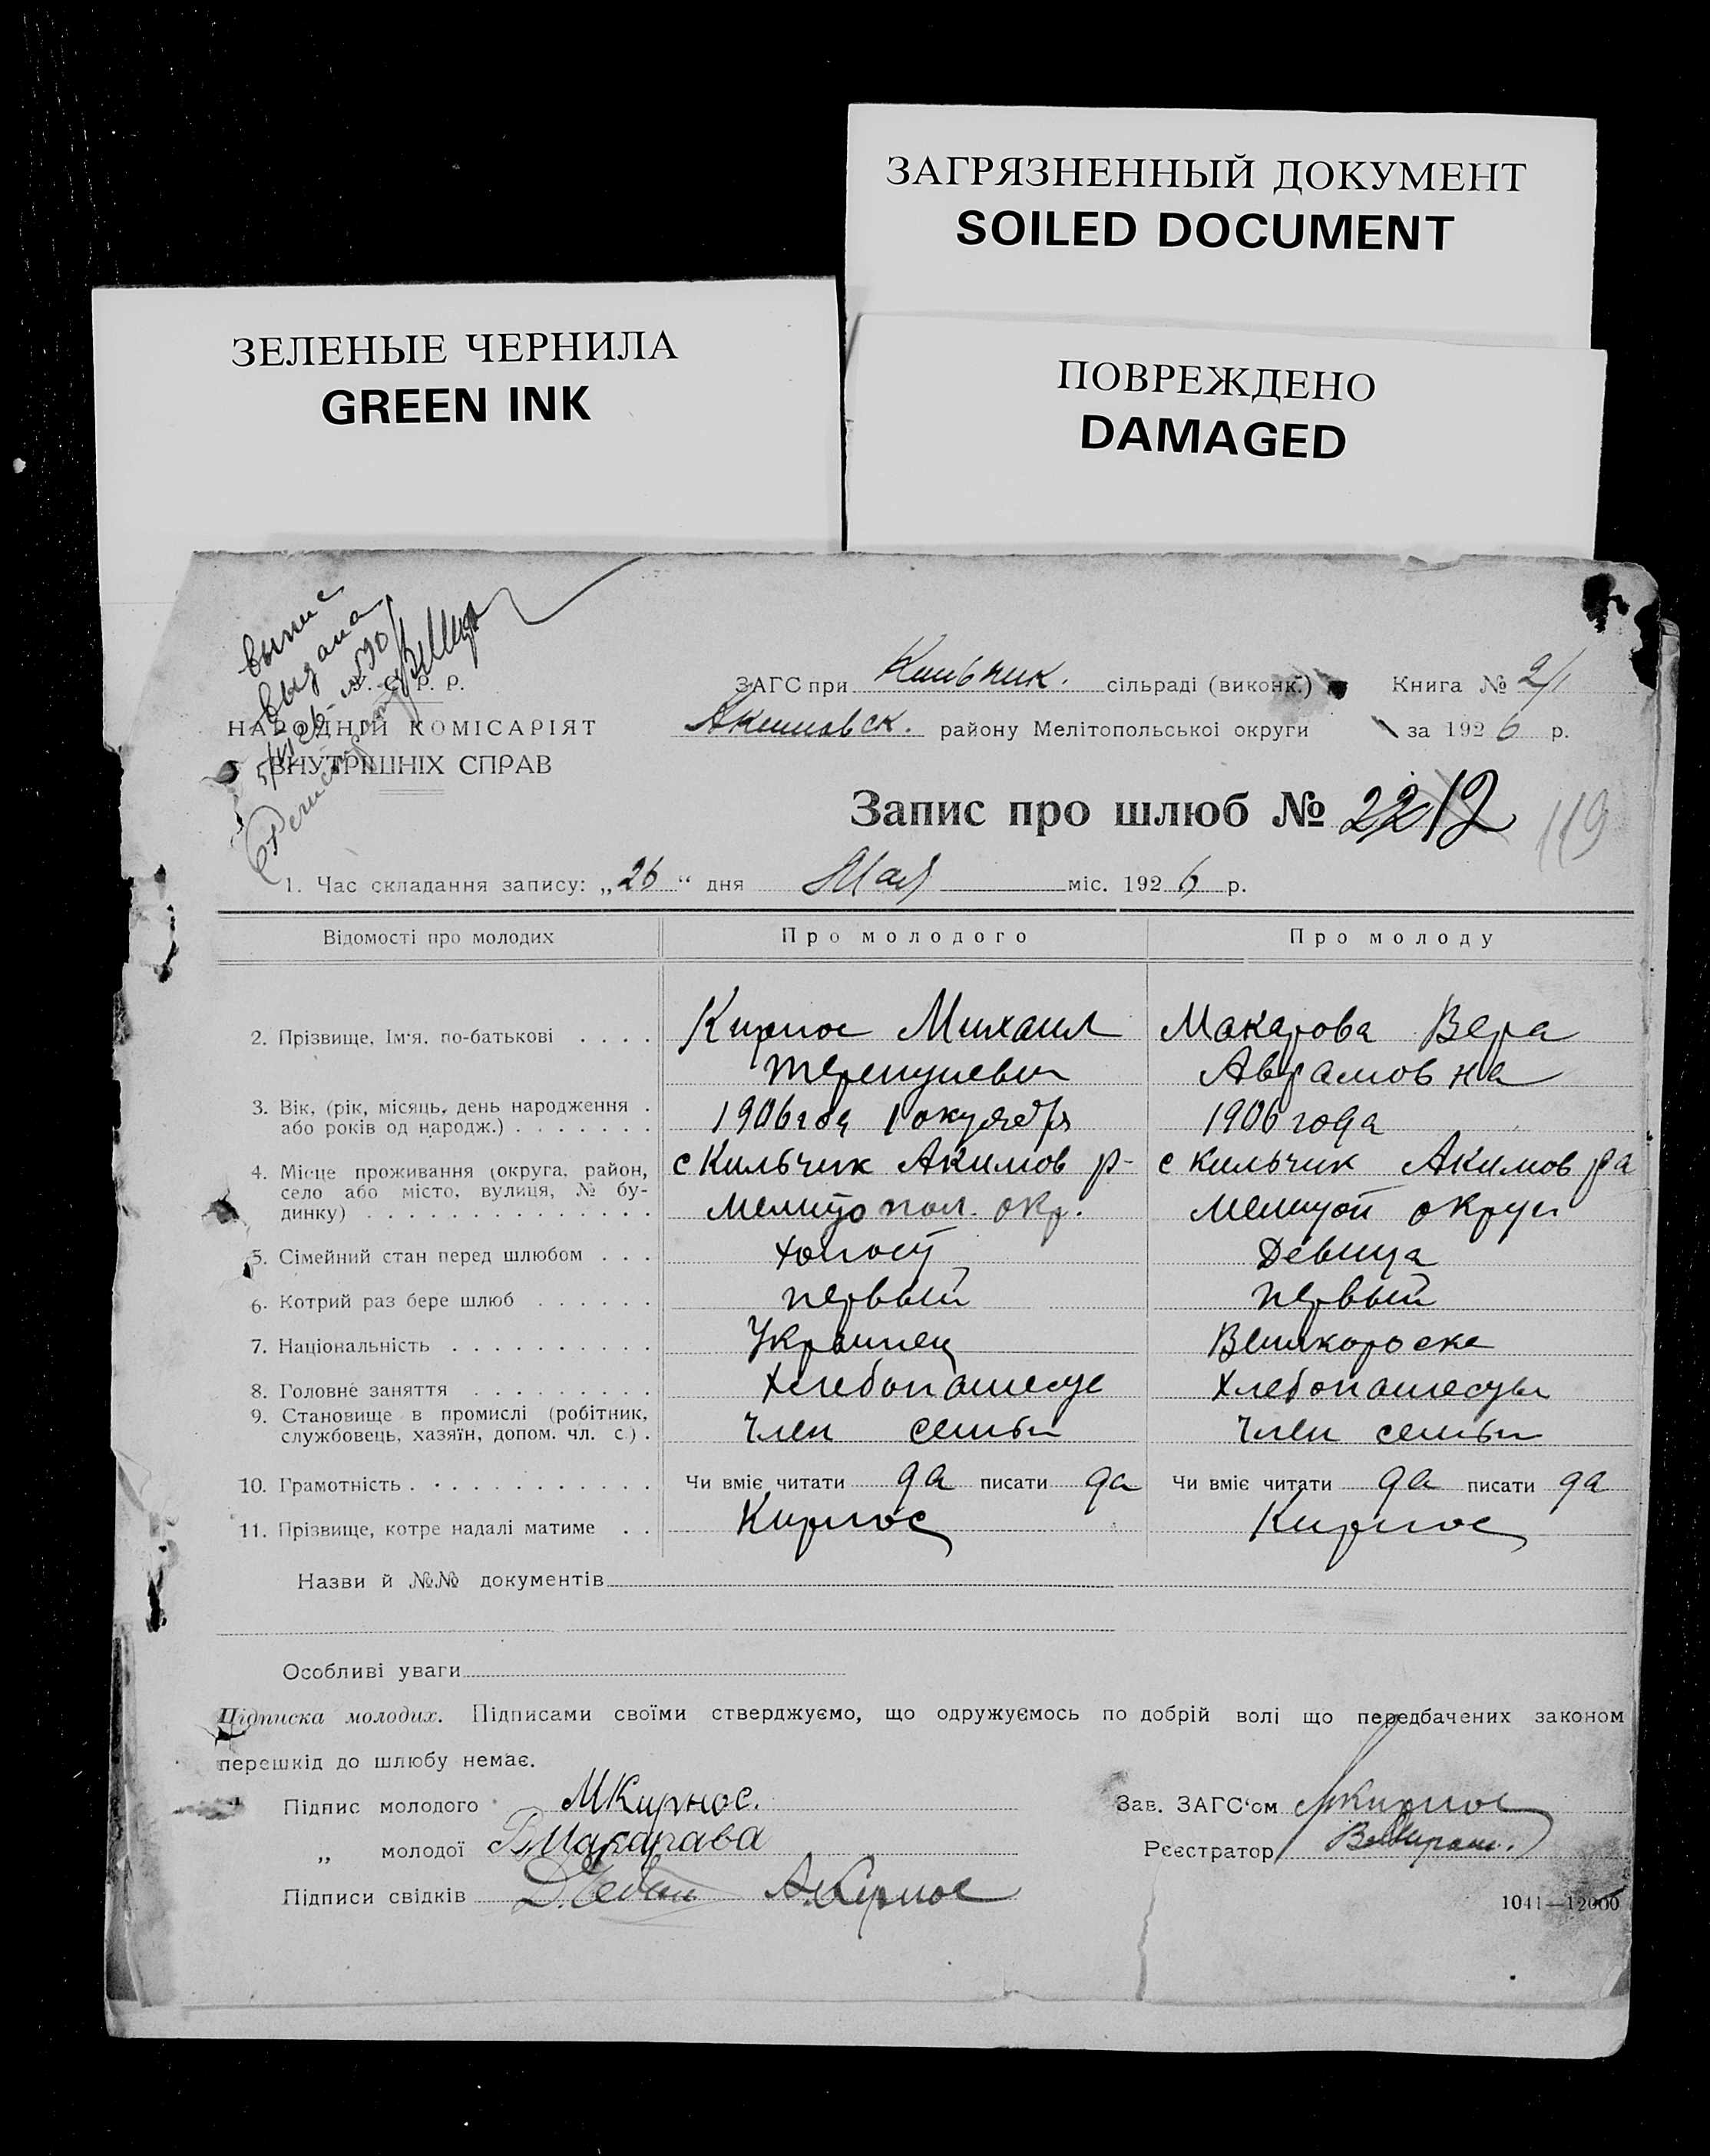 ЗАГРЯЗНЕННЫЙ ДОКУМЕНТ
SOILED DOCUMENT
ЗЕЛЕНЫЕ ЧЕРНИЛА
GREEN INK
ПОВРЕЖДЕНО
DAMAGED
выпис
выдана
Р. Р.
НАРОДНІЙ КОМІСАРІЯТ
ВНУТРІШНІХ СПРАВ
ЗАГС при Кильчик. сільраді (виконк.) Книга № 2/1
Акимовск. району Мелітопольської округи за 1926 р.
Запис про шлюб № 22 12 119
1. Час складання запису: „26“ дня Мая міс. 1926 р.
Відомості про молодих Про молодого Про молоду
2. Прізвище, Ім'я, по-батькові Кирнос Михаил Макарова Вера
Терентьевич Аврамовна
3. Вік, (рік, місяць, день народження 1906 года 1 октября 1906 года
або років од народж.)
4. Місце проживання (округа, район, с Кильчик Акимов р- с Кильчик Акимов р-на
село або місто, вулиця, № бу-
динку) Мелитопол. окр. Мелитоп округи
5. Сімейний стан перед шлюбом холост Девица
6. Котрий раз бере шлюб первый первый
7. Національність Украинец Великороска
8. Головне заняття Хлебопашест Хлебопашеств
9. Становище в промислі (робітник, член семьи член семьи
службовець, хазяїн, допом. чл. с.)
10. Грамотність Чи вміє читати да писати да Чи вміє читати да писати да
11. Прізвище, котре надалі матиме Кирнос Кирнос
Назви й №№ документів
Особливі уваги
Підписка молодих. Підписами своїми стверджуємо, що одружуємось по добрій волі що передбачених законом
перешкід до шлюбу немає.
Підпис молодого МКирнос. Зав. ЗАГС'ом Кирнос
„ молодої В Макарава Реєстратор
Підписи свідків А.Кирнос
1041—12000